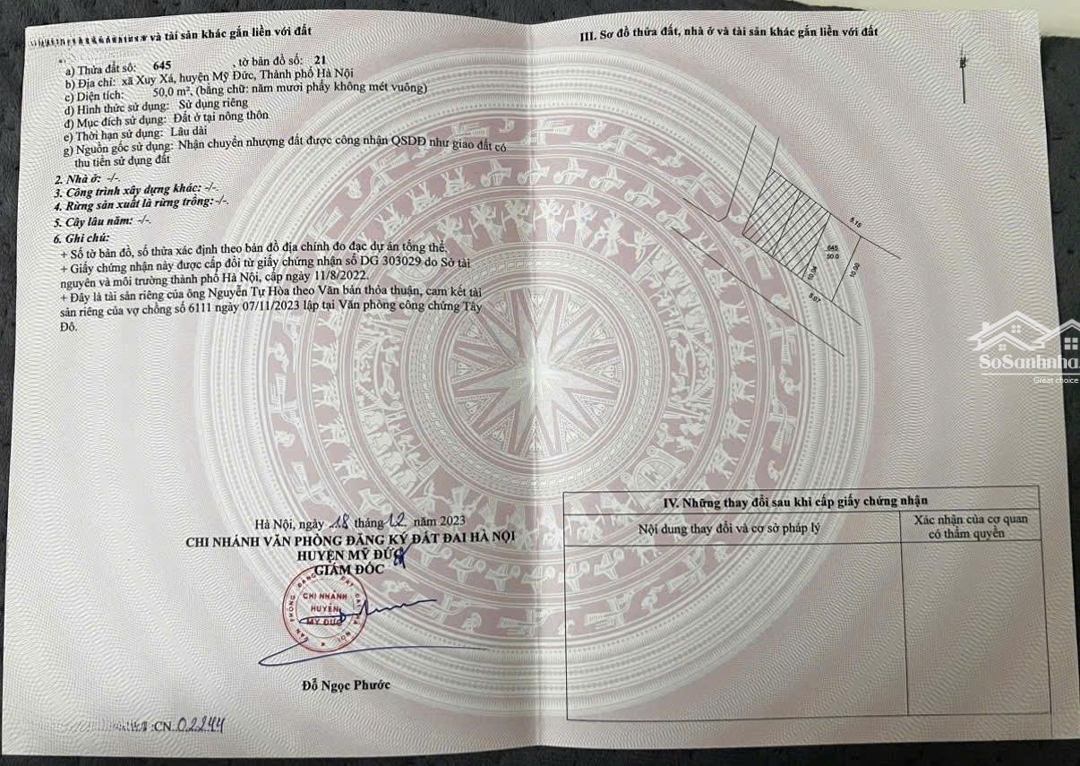 và tài sản khác gắn liền với đất
a) Thửa đất số: 645 , tờ bản đồ số: 21
b) Địa chỉ: xã Xuy Xá, huyện Mỹ Đức, Thành phố Hà Nội
c) Diện tích: 50,0 m², (bằng chữ: năm mươi phẩy không mét vuông)
d) Hình thức sử dụng: Sử dụng riêng
đ) Mục đích sử dụng: Đất ở tại nông thôn
e) Thời hạn sử dụng: Lâu dài
g) Nguồn gốc sử dụng: Nhận chuyển nhượng đất được công nhận QSDĐ như giao đất có
thu tiền sử dụng đất
2. Nhà ở: -/-.
3. Công trình xây dựng khác: -/-.
4. Rừng sản xuất là rừng trồng: -/-.
5. Cây lâu năm: -/-.
6. Ghi chú:
+ Số tờ bản đồ, số thửa xác định theo bản đồ địa chính đo đạc dự án tổng thể.
+ Giấy chứng nhận này được cấp đổi từ giấy chứng nhận số DG 303029 do Sở tài
nguyên và môi trường thành phố Hà Nội, cấp ngày 11/8/2022.
+ Đây là tài sản riêng của ông Nguyễn Tự Hòa theo Văn bản thỏa thuận, cam kết tài
sản riêng của vợ chồng số 6111 ngày 07/11/2023 lập tại Văn phòng công chứng Tây
Đô.
Hà Nội, ngày 18 tháng 12 năm 2023
CHI NHÁNH VĂN PHÒNG ĐĂNG KÝ ĐẤT ĐAI HÀ NỘI
HUYỆN MỸ ĐỨC
GIÁM ĐỐC
CHI NHÁNH
HUYỆN
MỸ ĐỨC
Đỗ Ngọc Phước
CN 02244
III. Sơ đồ thửa đất, nhà ở và tài sản khác gắn liền với đất
5.15
645
50.0
10.00
10.04
5.07
SoSanhnha
Great choice
IV. Những thay đổi sau khi cấp giấy chứng nhận
Nội dung thay đổi và cơ sở pháp lý
Xác nhận của cơ quan
có thẩm quyền